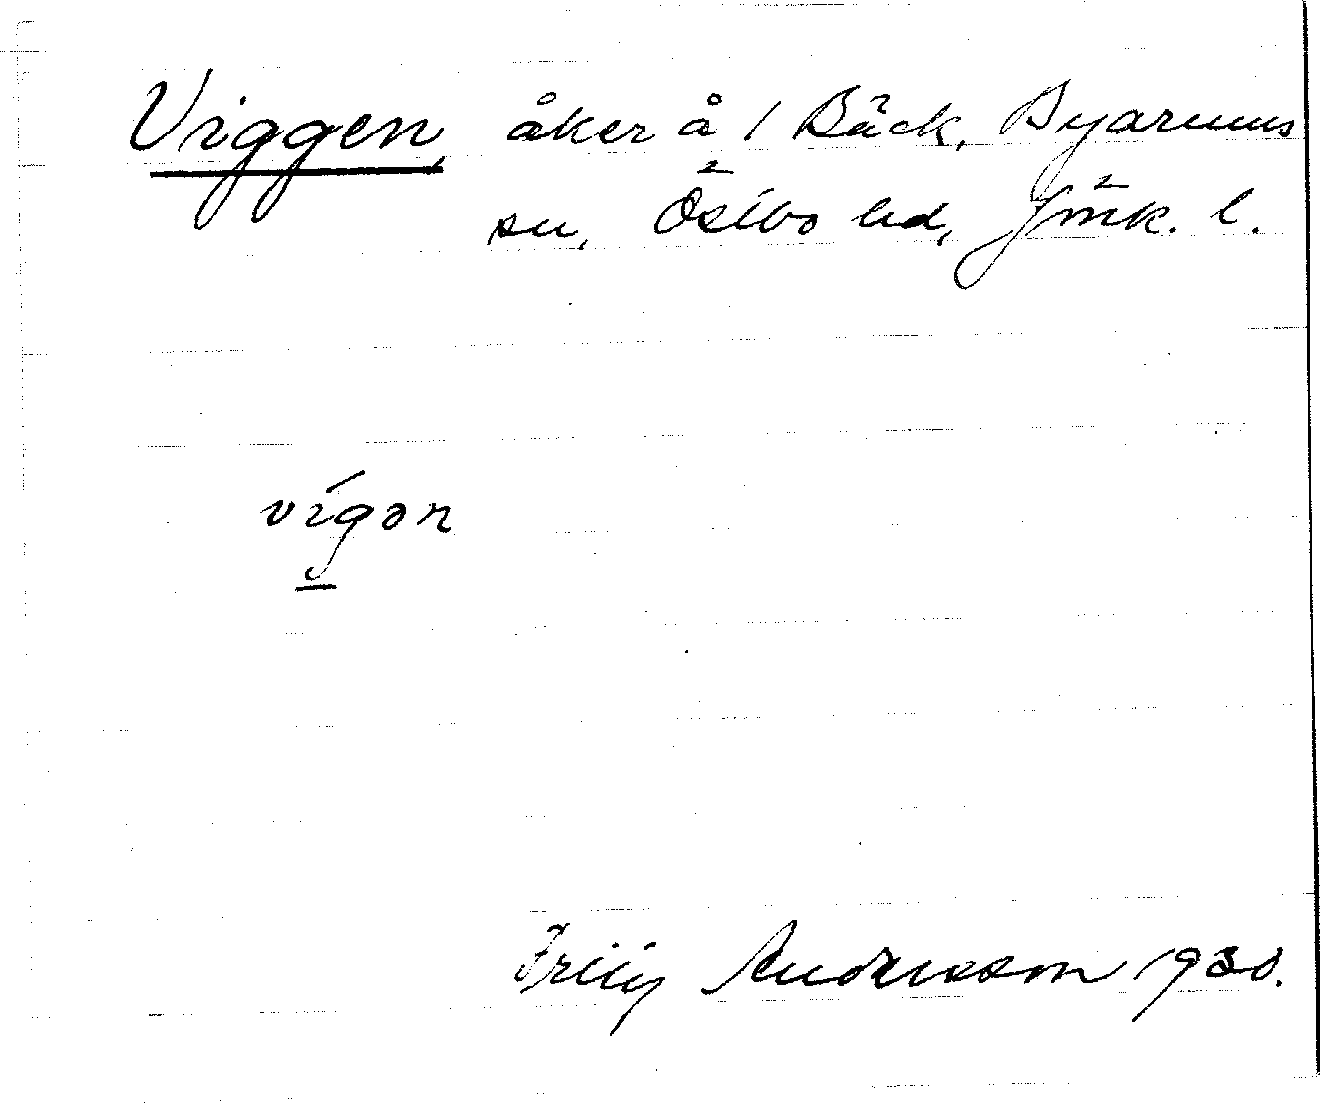 Viggen, åker å 1 Bäck, Byarums
sn, Östbo hd, Jönk. l.
vígən
Fritz Andersson 1930.